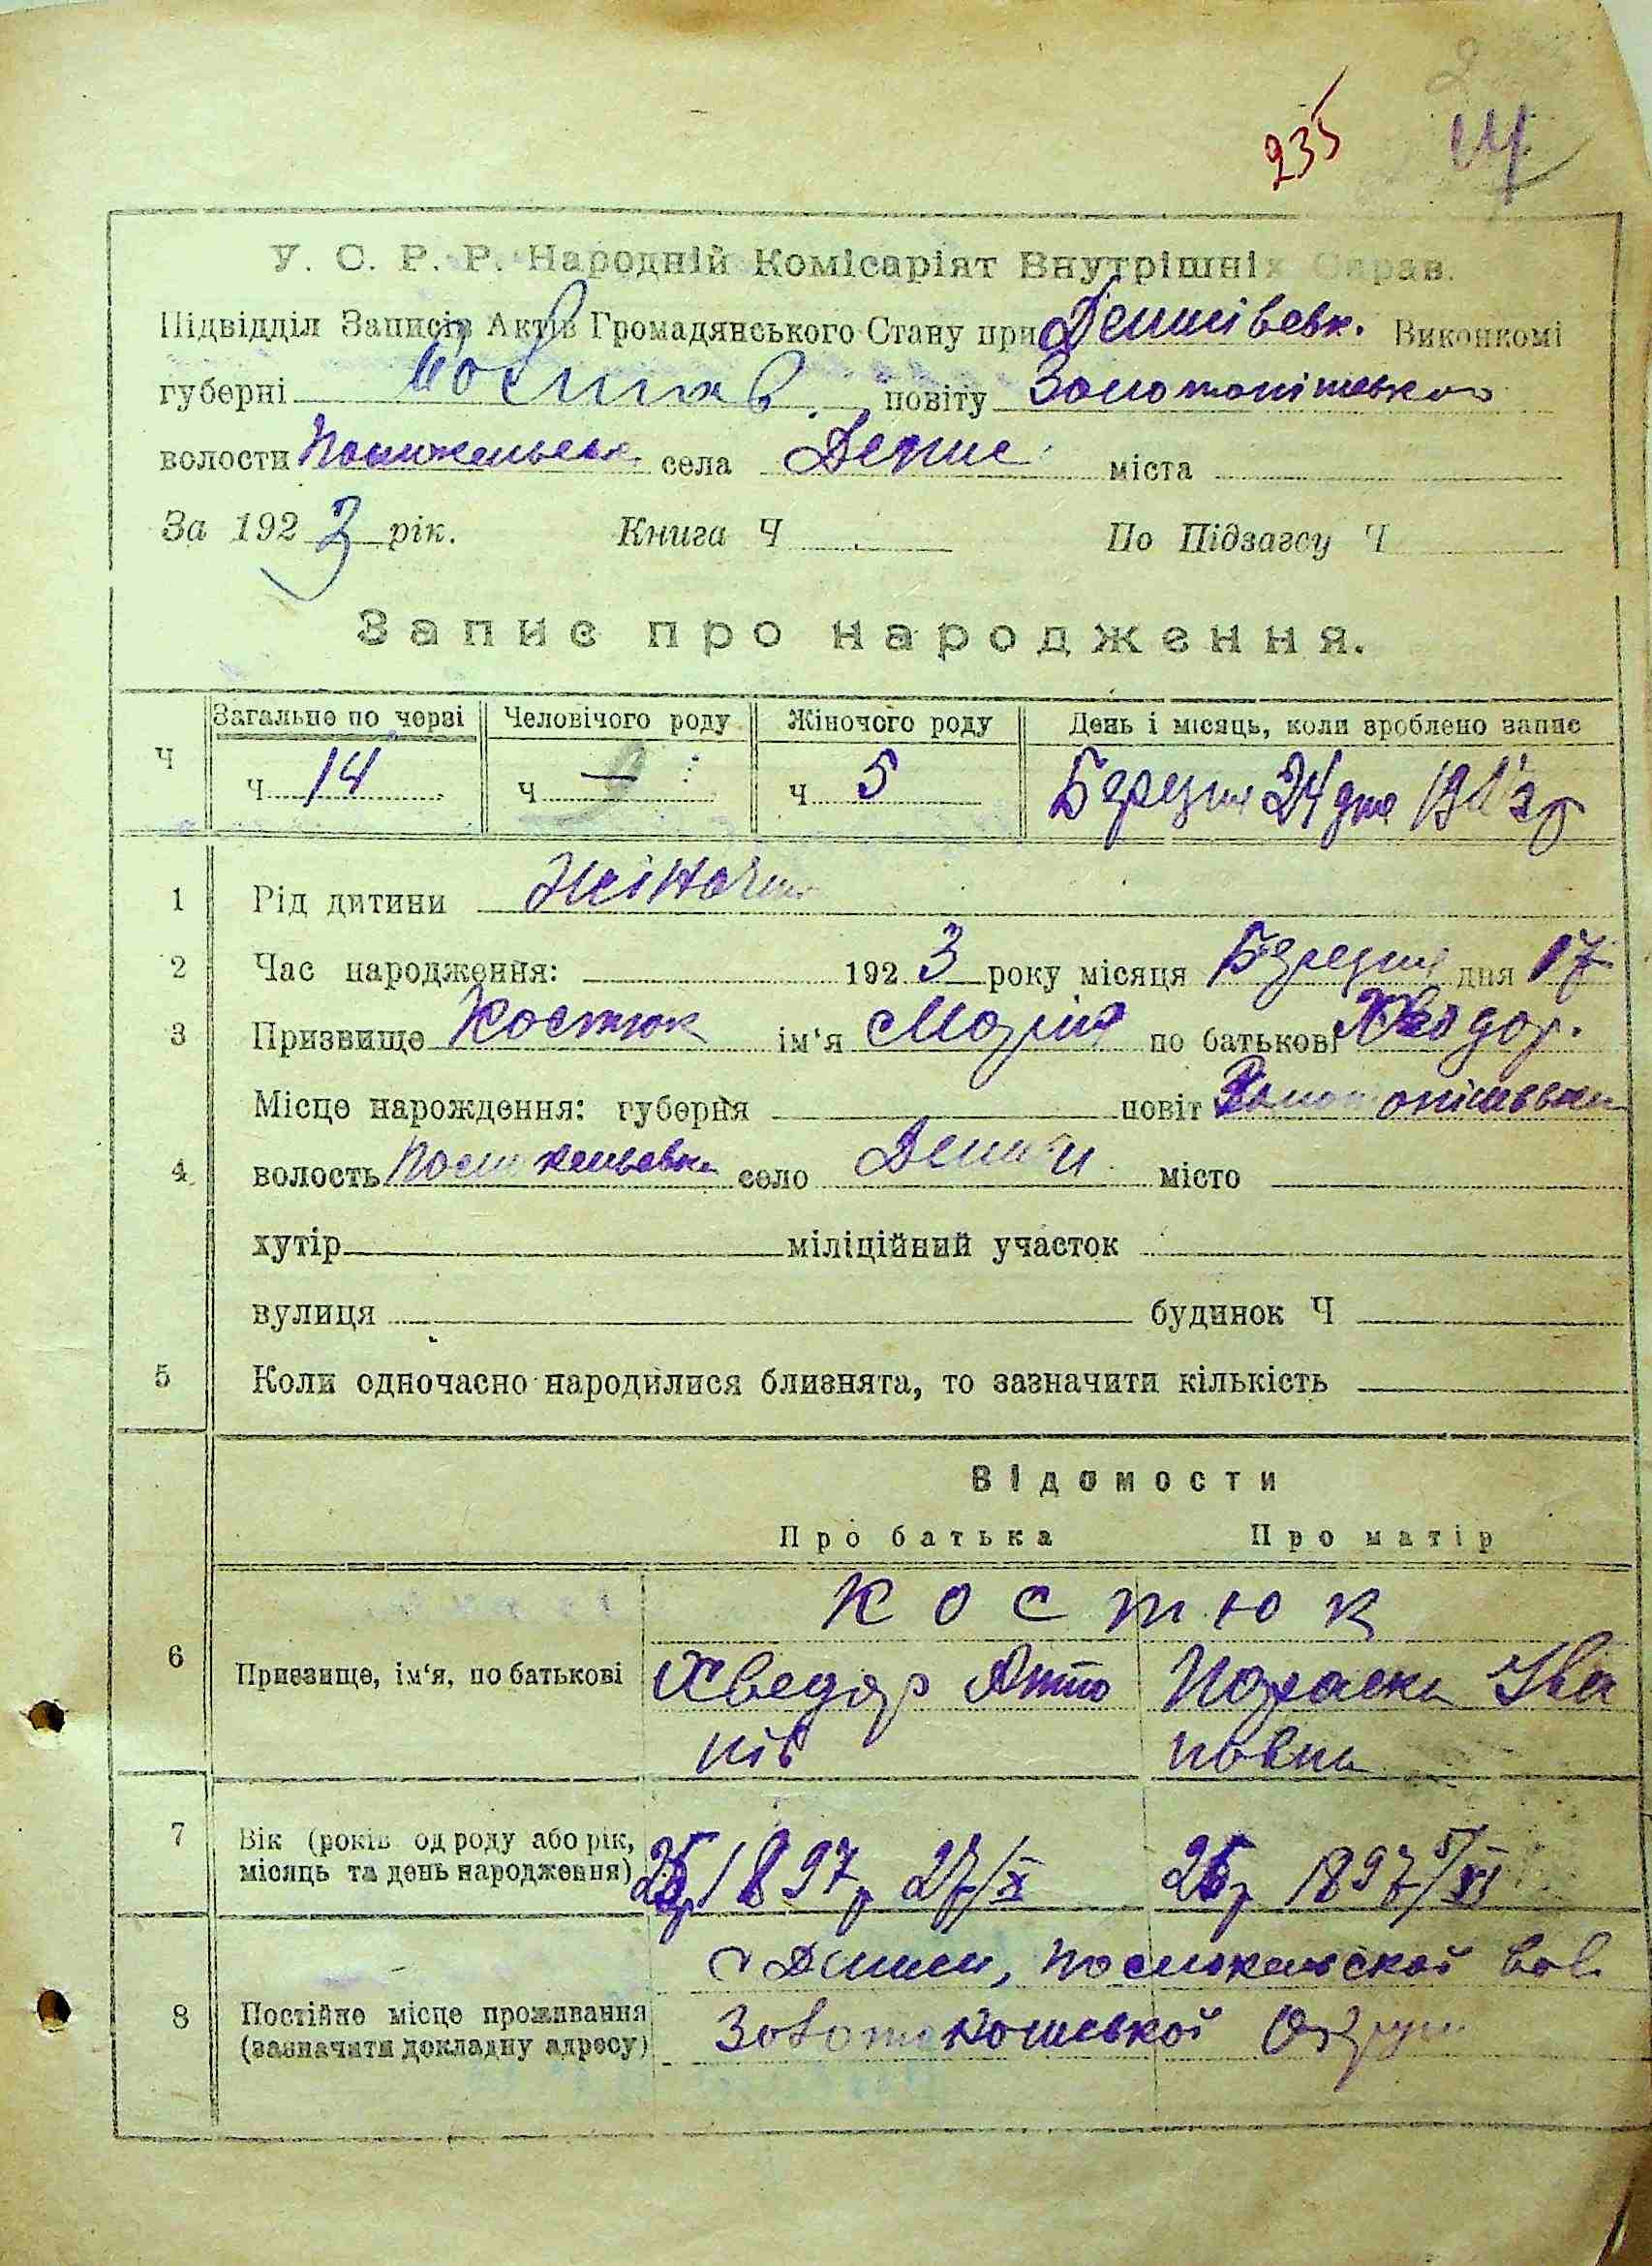 235
14
У. С. Р. Р. Народній Комісаріят Внутрішніх Справ.
Підвідділ Записів Актів Громадянського Стану при Виконкомі
губерні Полтав. повіту Золотоніського
волости села міста
За 1923 рік. Книга Ч По Підзагсу Ч
Запис про народження.
Ч Загальне по черзі Человічого роду Жіночого роду День і місяць, коли зроблено запис
Ч 14 Ч — Ч 5 Березня 24 дня
1 Рід дитини Жіночий
2 Час народження: 1923 року місяця Березня дня 17
3 Призвище Костюк ім'я Марія по батькові Хведор.
Місце народження: губерня повіт
4 волость село Деньги місто
хутір міліційний участок
вулиця будинок Ч
5 Коли одночасно народилися близнята, то зазначити кількість
Відомости
Про батька Про матір
Костюк
6 Призвище, ім'я, по батькові Хведор Анто Параска Іва
нів новна
7 Вік (років од роду або рік, 25р 1897р 27/X 25р 1897 5/XI
місяць та день народження)
с Деньги,
8 Постійне місце проживання Золотоношської Округи
(зазначити докладну адресу)